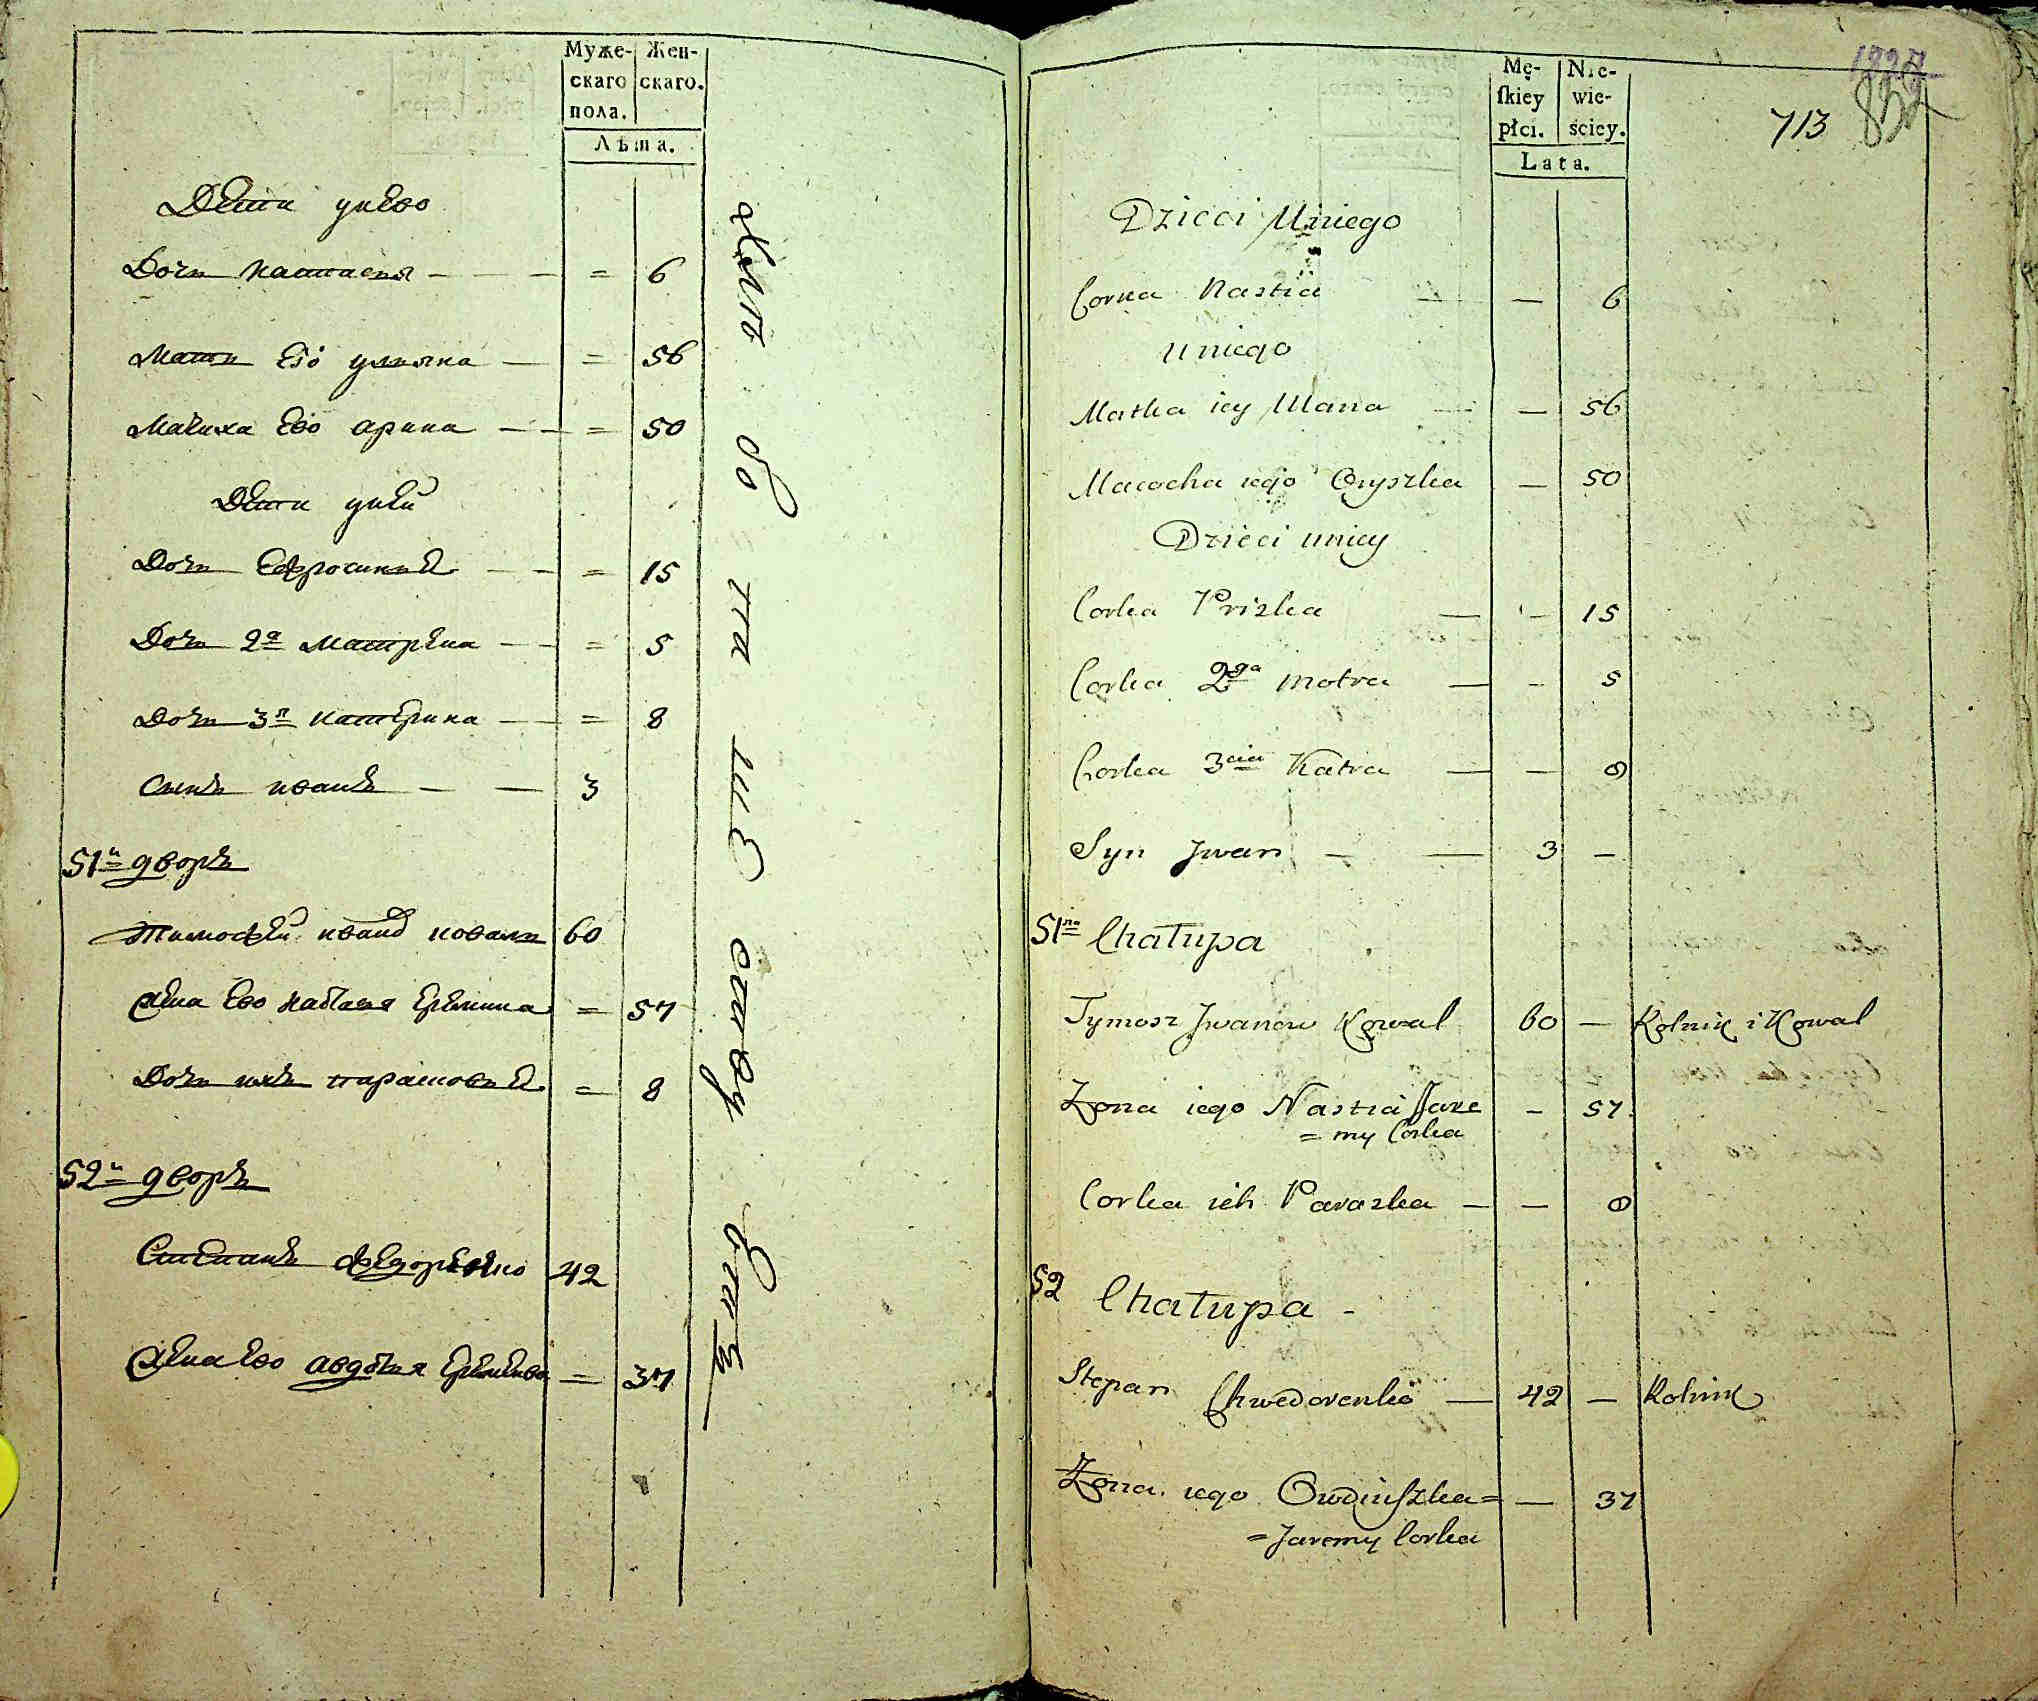 Муже-
скаго
пола.
Жен-
скаго.
Лѣта.
Дети унево
Дочь настасья — — — = 6
Мать его ульяна — = 56
Мачиха ево арина — — = 50
Дети уней
Дочь Ефросинья — — = 15
Дочь 2я Матрена — — = 5
Дочь 3я катерина — — = 8
Сынъ иванъ — — 3
51й дворъ
Тимофей иванов коваль 60
Жена ево настасья еремина = 57
Дочь ихъ парасковья = 8
52й дворъ
Степанъ федоренко 42
Жена ево авдотья еремеева = 37
Mę-
ſkiey
płci.
Nie-
wie-
ściey.
Lata.
713
Dzieci Uniego
Corka Nastia — — 6
Uniego
Matka iey Ulana — — 56
Macocha iego Oryszka — 50
Dzieci uniey
Corka Priska — — 15
Corka 2ga Motra — — 5
Corka 3cia Katra — — 8
Syn Jwan — — 3 —
51ma Chałupa
Tymosz Jwanow Kowal 60 — Rolnik i Kowal
Zona iego Nastia Jare — 57
= my Corka
Corka ich Paraska — — 8
52 Chałupa -
Stepan Chwedorenko — 42 — Rolnik
Zona iego Owdiuſzka = — 37
= Jaremy Corka